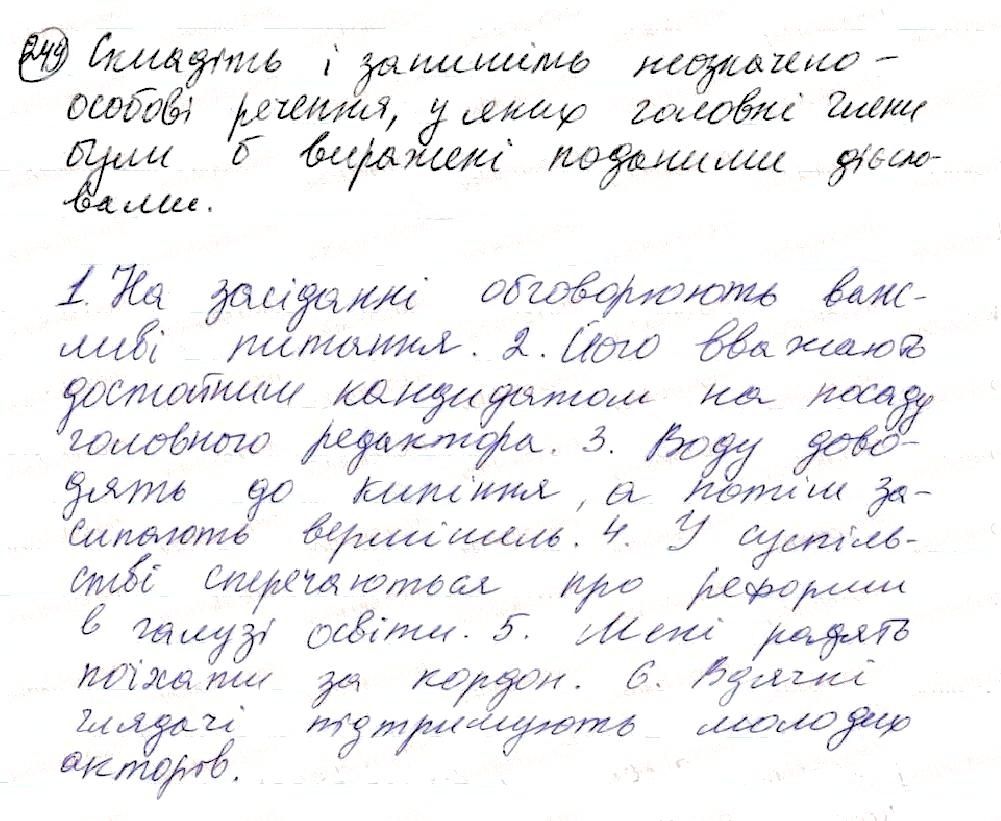 244 Складіть і запишіть неозначено-
особові речення, у яких головні члени
були б виражені поданими дієсло-
вами.
1. На засіданні обговорюють важ-
ливі питання. 2. Його вважають
достойним кандидатом на посаду
головного редактора. 3. Воду дово-
дять до кипіння, а потім за-
сипають вермішель. 4. У суспіль-
стві сперечаються про реформи
в галузі освіти. 5. Мені радять
поїхати за кордон. 6. Вдячні
глядачі підтримують молодих
акторів.